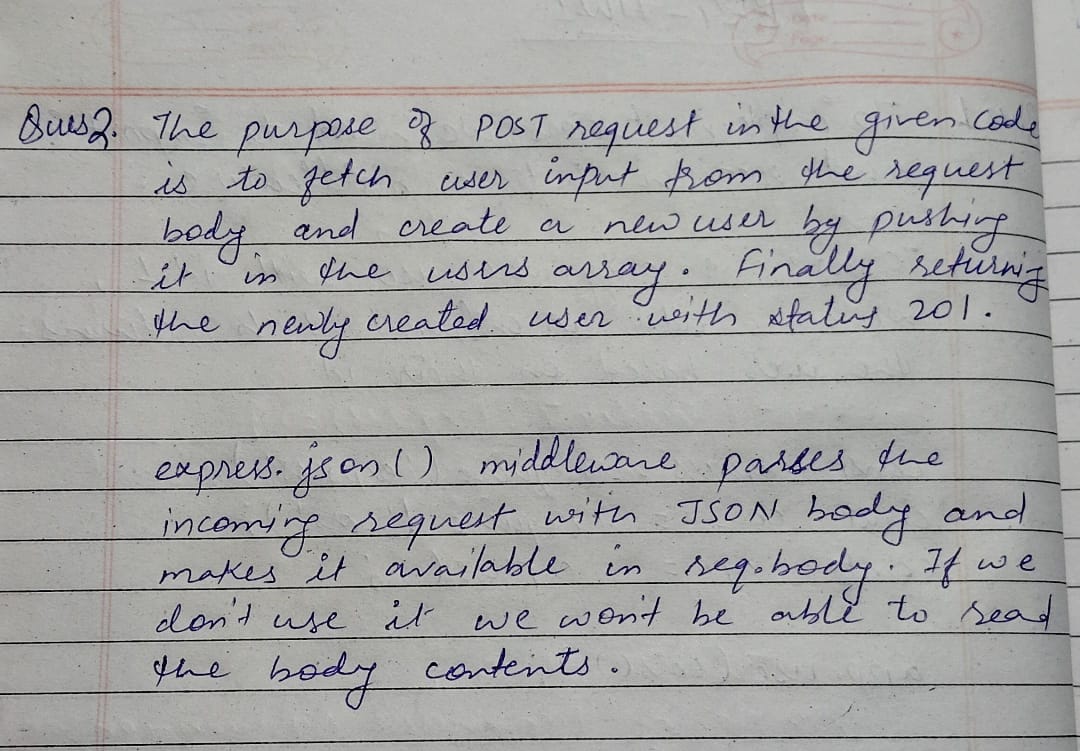 Ques2. The purpose of POST request in the given code
is to fetch user input from the request
body and create a new user by pushing
it in the users array. Finally returning
the newly created user with status 201.
express.json() middleware parses the
incoming request with JSON body and
makes it available in req.body. If we
don't use it we won't be able to read
the body contents.